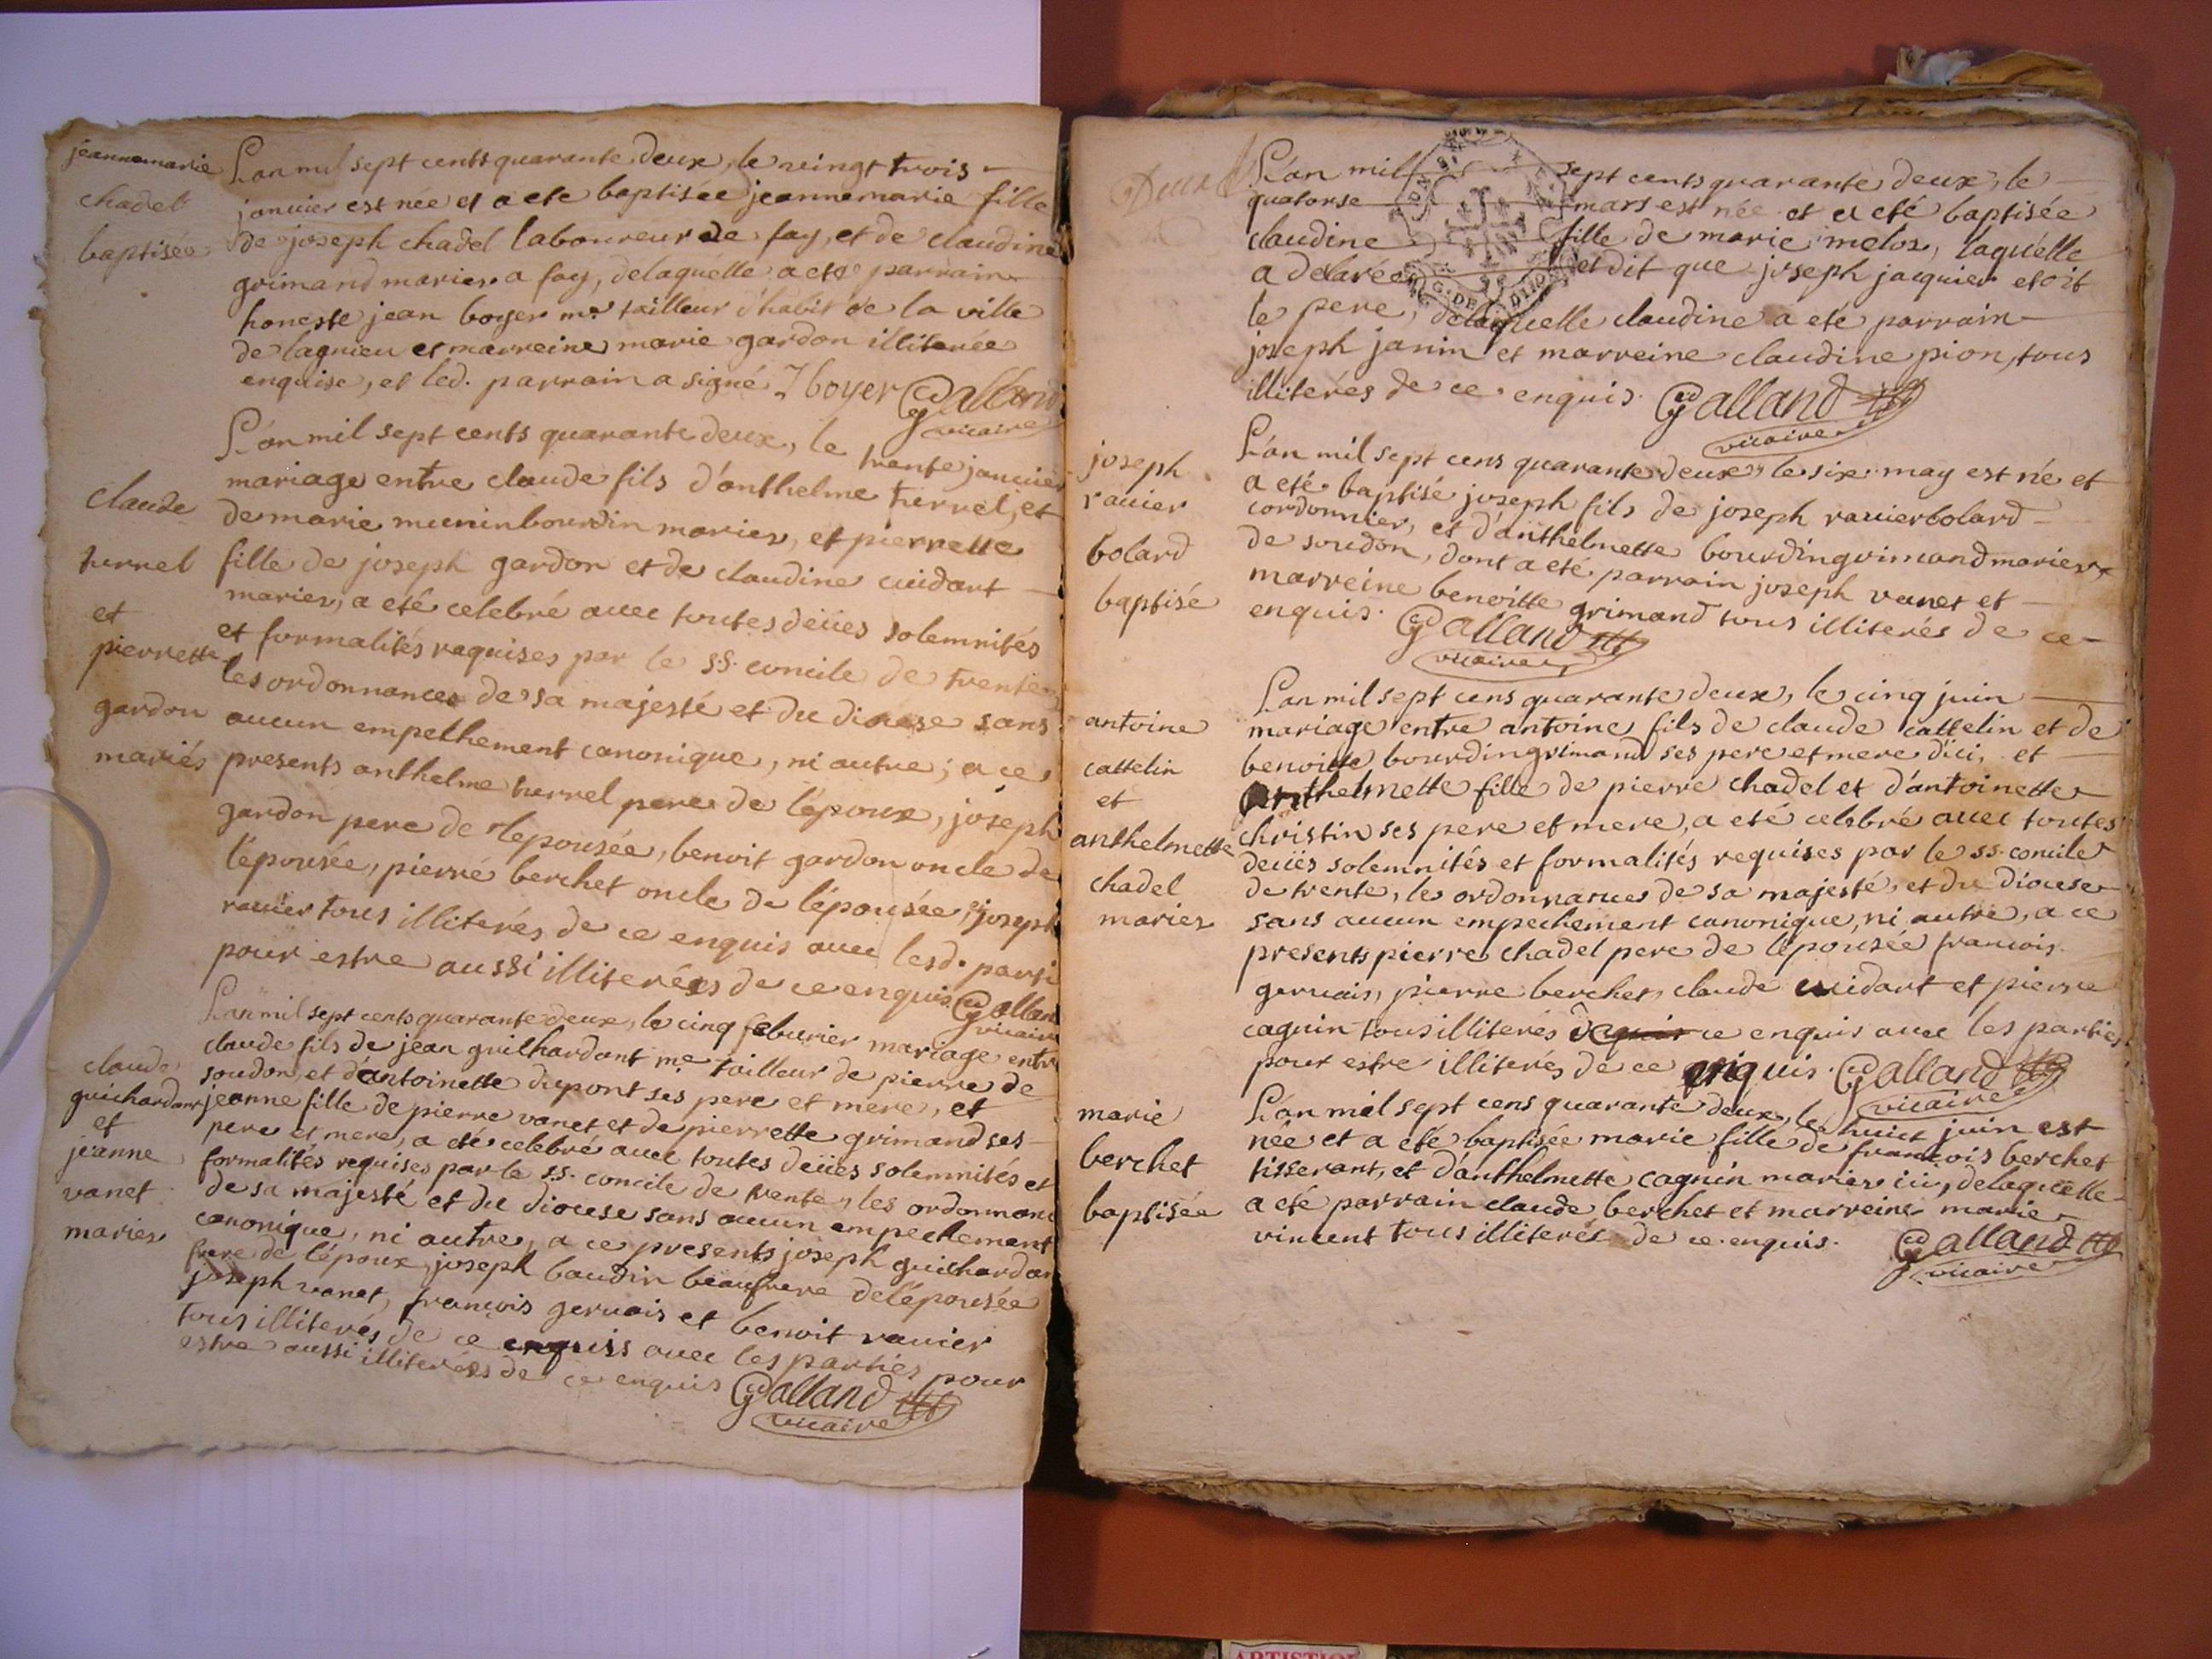 jeannemarie
chadel
baptisée
L'an mil sept cents quarante deux, le veingt trois
januier est née et a eté baptisée jeannemarie fille
de joseph chadel laboureur de fay, et de claudine
grimand maries a fay, delaquelle a eté parrain
honeste jean boyer me. tailleur d'habit de la ville
de lagnieu et marreine marie gardon illiterée
enquise, et led. parrain a signé J boyer Galland
vicaire
claude
turrel
et
pierrette
gardon
mariés
L'an mil sept cents quarante deux, le trente januier
mariage entre claude fils d'anthelme turrel, et
de marie muninbourdin maries, et pierrette
fille de joseph gardon et de claudine cuidart
maries, a eté celebré auec toutes deües solemnités
et formalités requises par le SS. concile de trente
les ordonnances de sa majesté et du diocese sans
aucun empelhement canonique, ni autre; a ce
presents anthelme turrel pere de l'époux, joseph
gardon pere de l'epousée, benoit gardon oncle de
l'épousée, pierre berchet oncle de l'épousée, joseph
rauier tous illiterés de ce enquis auec lesd. parti
pour estre aussi illiterées de ce enquis Galland
vicaire
claude
guichardant
et
jeanne
vanet
maries
L'an mil sept cents quarante deux, le cinq feburier mariage entre
claude fils de jean guilhardant me. tailleur de pierre de
soudon, et d'antoinette dupont ses pere et mere, et
jeanne fille de pierre vanet et de pierrette grimand ses
pere et mere, a eté celebré auec toutes deües solemnités et
formalités requises par le SS. concile de trente, les ordonnanc
de sa majesté et du diocese sans aucun empechement
canonique, ni autre, a ce presents joseph guichardan
frere de l'époux, joseph baudin beaufrere de l'épousée
joseph vanet, francois geruais et benoit rauier
tous illiterés de ce enquis auec les parties pour
estre aussi illiterées de ce enquis Galland
vicaire
Deux
L'an mil sept cents quarante deux, le
quatorse mars est née et a eté baptisée
claudine fille de marie melos, laquelle
a delaré et dit que joseph jacquier etoit
le pere, delaquelle claudine a eté parrain
joseph janin et marreine claudine pion, tous
illiterés de ce enquis. Galland
vicaire
G. DE DIJON
joseph
rauier
bolard
baptisé
L'an mil sept cens quarante deux, le six may est né et
a eté baptisé joseph fils de joseph rauierbolard
cordonnier, et d'anthelmette bourdingrimand maries
de soudon, dont a eté parrain joseph vanet et
marreine benoitte grimand tous illiterés de ce
enquis. Galland
vicaire
antoine
cattelin
et
anthelmette
chadel
maries
L'an mil sept cens quarante deux, le cinq juin
mariage entre antoine fils de claude cattelin et de
benoitte bourdingrimand ses pere et mere d'ici, et
anthelmette fille de pierre chadel et d'antoinette
christin ses pere et mere, a eté celebré auec toutes
deües solemnités et formalités requises par le SS. concile
de trente, les ordonnances de sa majesté, et du diocese
sans aucun empechement canonique, ni autre, a ce
presents pierre chadel pere de l'épousée francois
geruais, pierre berchet, claude cuidart et pierre
cagnin tous illiterés de ce enquis auec les parties
pour estre illiterés de ce enquis. Galland
vicaire
marie
berchet
baptisée
L'an mil sept cens quarante deux, le huict juin est
née et a eté baptisée marie fille de francois berchet
tisserant, et d'anthelmette cagnin maries ici, delaquelle
a eté parrain claude berchet et marreine marie
vincent tous illiterés de ce enquis. Galland
vicaire